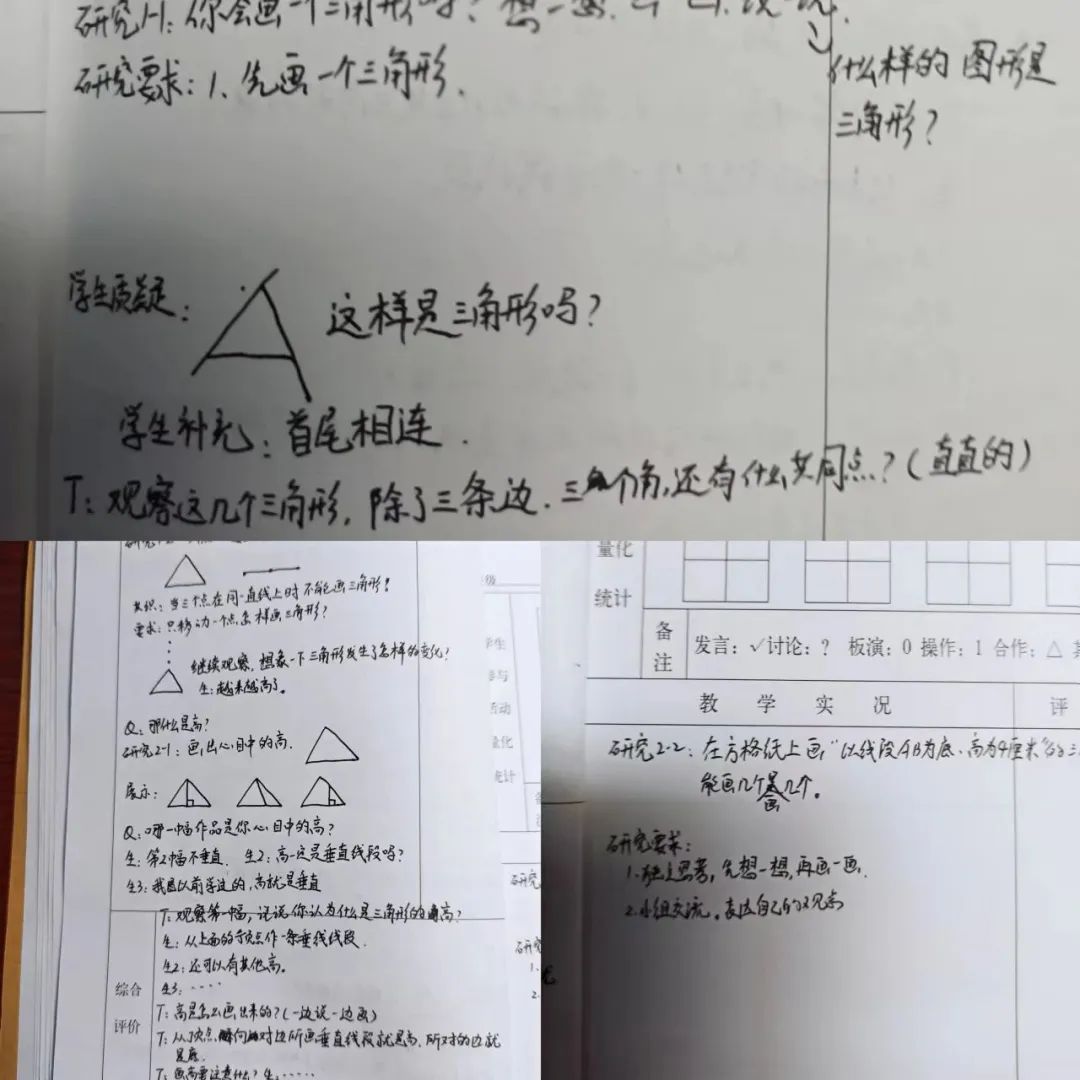 研究1-1：你会画一个三角形吗？想一想．
研究要求：1、先画一个三角形．
什么样的图形是
三角形？
学生质疑：这样是三角形吗？
学生补充：首尾相连．
T：观察这几个三角形，除了三条边．三个角，还有什么共同点？（直直的）
共识：当三个点在同一直线上时不能画三角形！
要求：只移动一个点，怎样画三角形？
继续观察，想象一下三角形发生了怎样的变化？
生：越来越高了。
Q：那什么是高？
研究2-1：画出心目中的高．
展示：
Q：哪一幅作品是你心目中的高？
生：第2幅不垂直． 生2：高一定是垂直线段吗？
生3：我以前学过的，高就是垂直
T：观察第一幅，说说你认为什么是三角形的高？
生：从上面的顶点作一条垂线线段．
生2：还可以有其他高。
生3：····
T：高是怎么画出来的？（一边说一边画）
T：从顶点向对边所画垂直线段就是高，所对的边就
是底．
T：画高要注意什么？生：·····
综合
评价
级
学生
参与
活动
量化
统计
研究
研究
1.
2.
量化
统计
备
注
发言：√讨论：？ 板演：0 操作：1 合作：△
教 学 实 况
评
研究2-2：在方格纸上画，“以线段AB为底、高为4厘米”的三
能画几个画几个。
研究要求：
1.独立思考，先想一想，再画一画．
2.小组交流。表达自己的观点